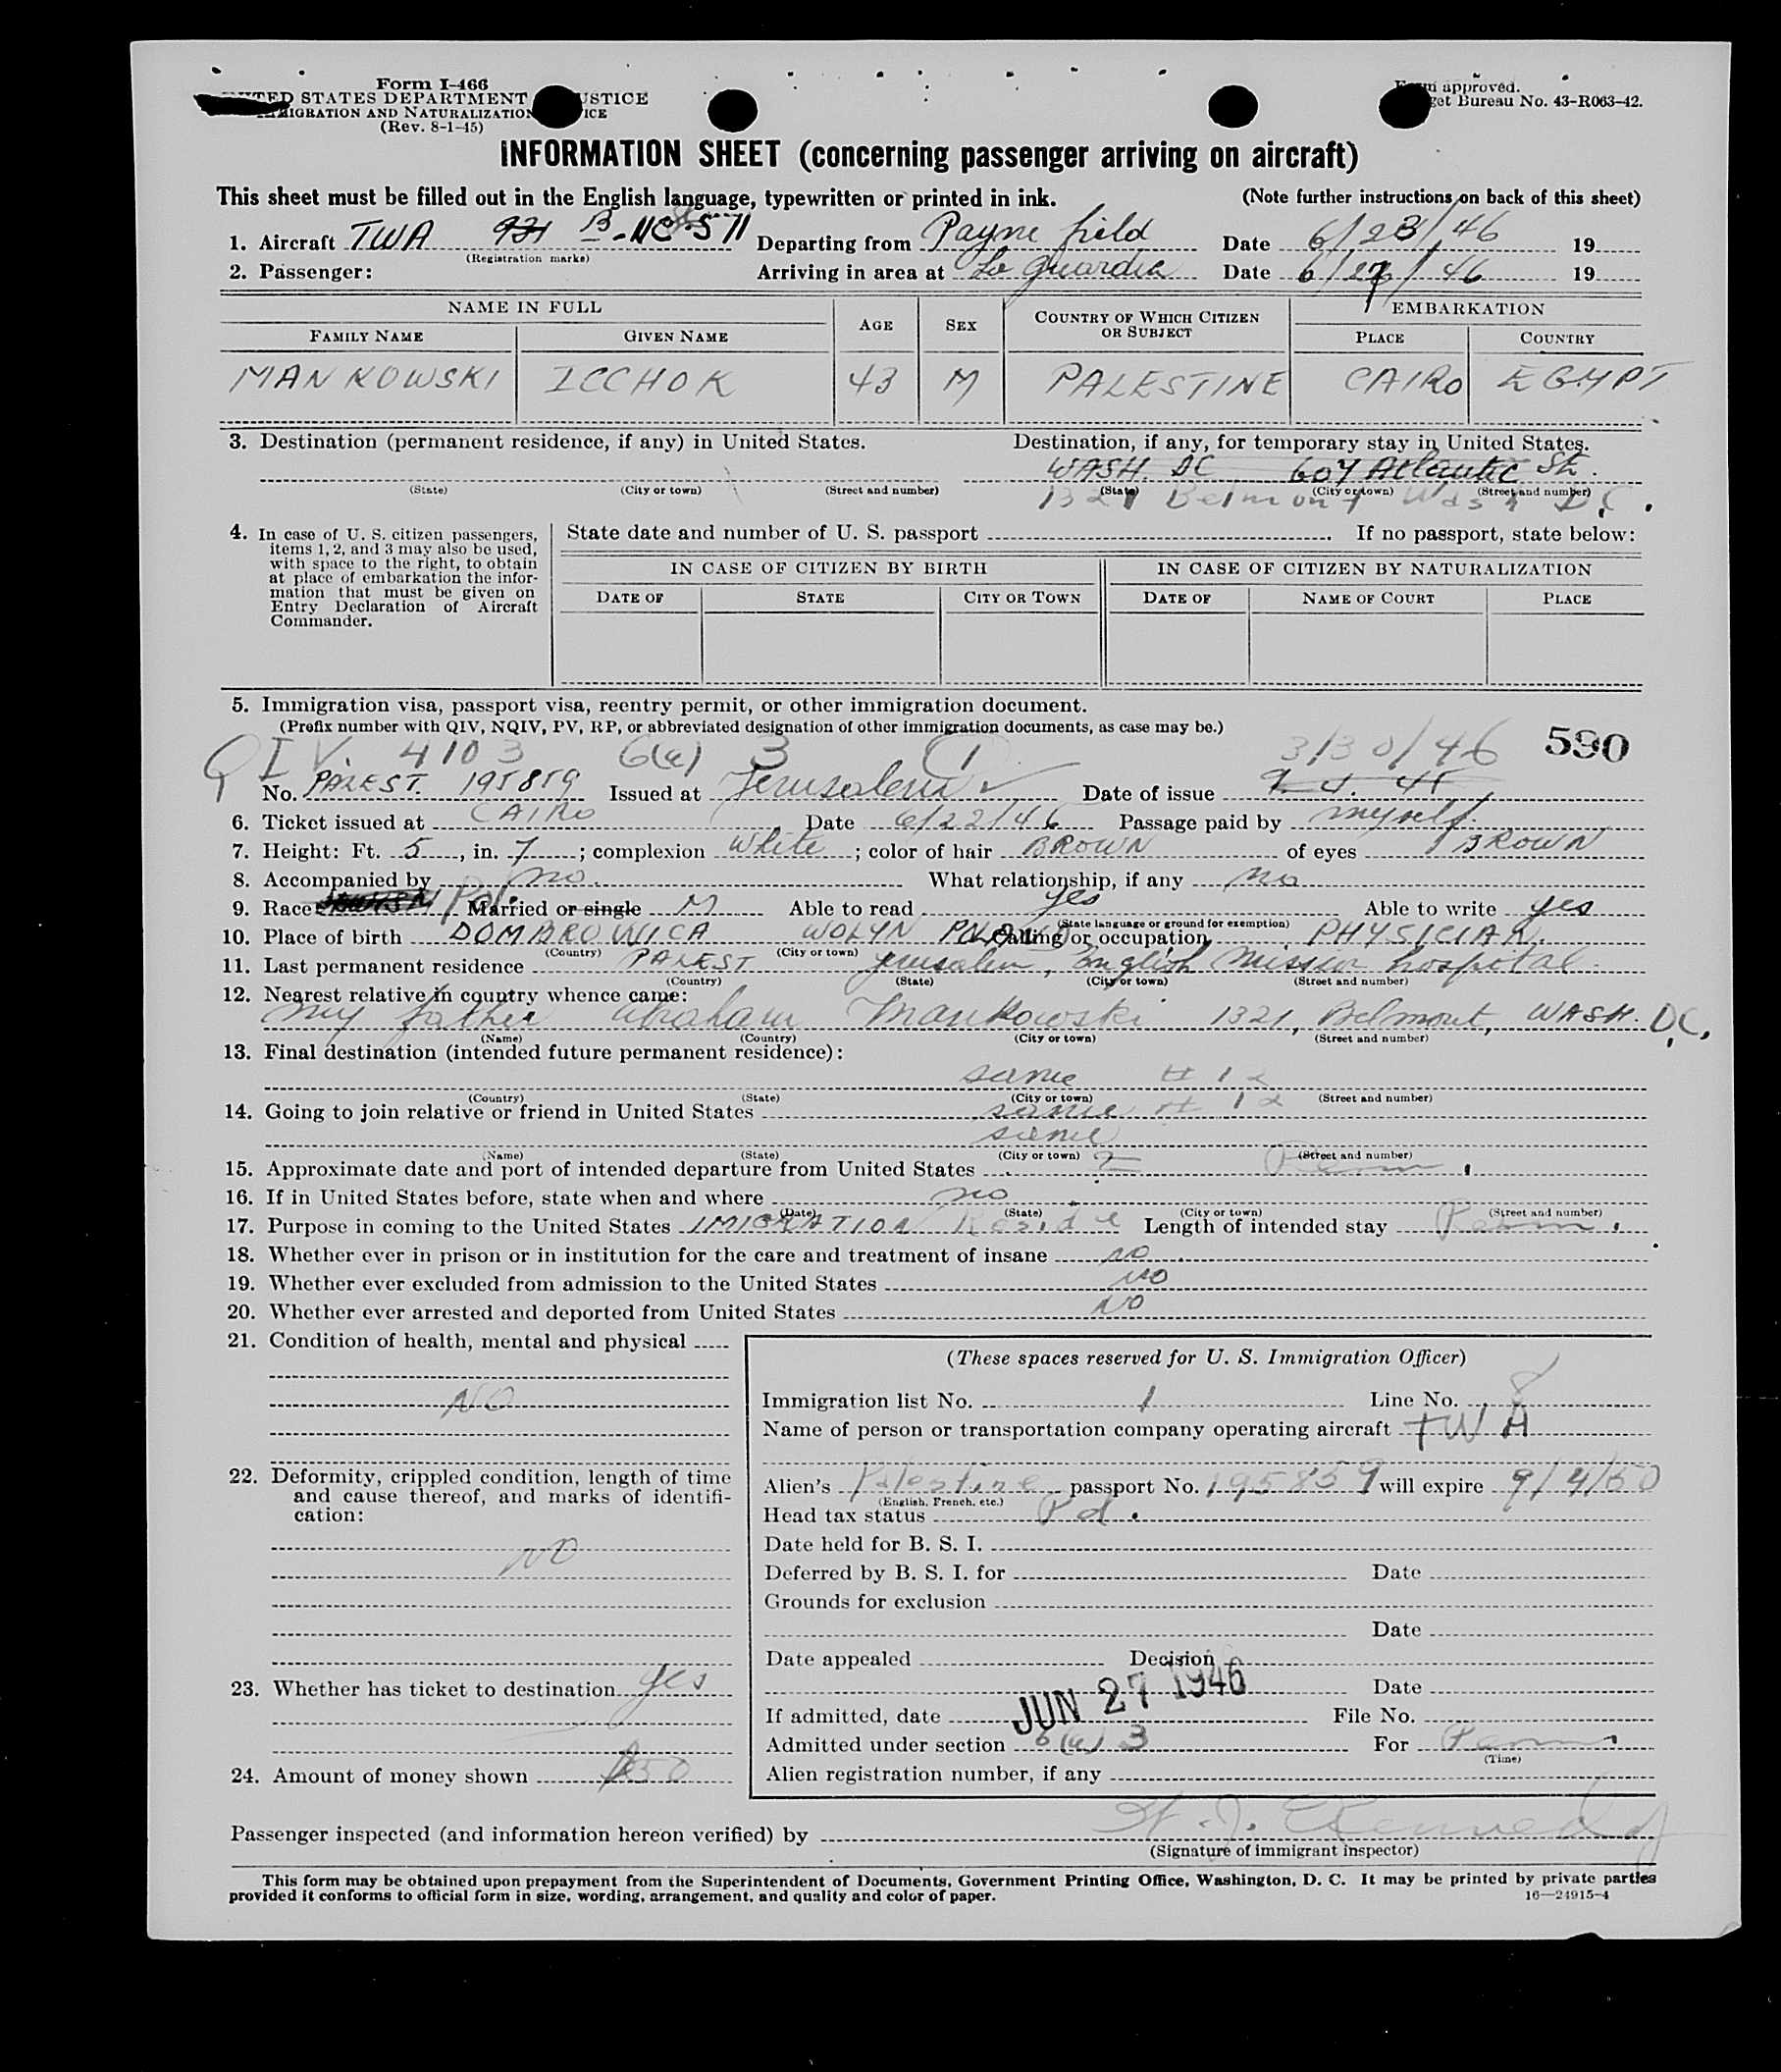 Form I-466
UNITED STATES DEPARTMENT JUSTICE
IMMIGRATION AND NATURALIZATION SERVICE
(Rev. 8-1-45)
Form approved.
Budget Bureau No. 43-R063-42.
INFORMATION SHEET (concerning passenger arriving on aircraft)
This sheet must be filled out in the English language, typewritten or printed in ink. (Note further instructions on back of this sheet)
1. Aircraft TWA 571 Departing from Payne field Date 6/23/46 19
(Registration marks)
2. Passenger: Arriving in area at La guardia Date 6/27/46 19
NAME IN FULL AGE SEX COUNTRY OF WHICH CITIZEN OR SUBJECT EMBARKATION
FAMILY NAME GIVEN NAME PLACE COUNTRY
MANKOWSKI ICCHOK 43 M PALESTINE CAIRO EGYPT
3. Destination (permanent residence, if any) in United States. Destination, if any, for temporary stay in United States.
WASH. DC 607 Atlantic St.
(State) (City or town) (Street and number) (State) (City or town) (Street and number)
1321 Belmont Wash D.C.
4. In case of U. S. citizen passengers, items 1, 2, and 3 may also be used, with space to the right, to obtain at place of embarkation the information that must be given on Entry Declaration of Aircraft Commander.
State date and number of U. S. passport . If no passport, state below:
IN CASE OF CITIZEN BY BIRTH IN CASE OF CITIZEN BY NATURALIZATION
DATE OF STATE CITY OR TOWN DATE OF NAME OF COURT PLACE
5. Immigration visa, passport visa, reentry permit, or other immigration document.
(Prefix number with QIV, NQIV, PV, RP, or abbreviated designation of other immigration documents, as case may be.)
QIV. 4103 6(a) 3 3/30/46 590
No. PALEST. 195859 Issued at Jerusalem Date of issue 9. 4. 45
6. Ticket issued at CAIRO Date 6/22/46 Passage paid by myself.
7. Height: Ft. 5, in. 7; complexion White; color of hair BROWN of eyes BROWN
8. Accompanied by no. What relationship, if any no
9. Race Pol. Married or single M Able to read yes Able to write yes
(State language or ground for exemption)
10. Place of birth DOMBROWICA WOLYN POLAND Calling or occupation PHYSICIAN.
(Country) (City or town)
11. Last permanent residence PALEST Jerusalem, English Mission hospital
(Country) (State) (City or town) (Street and number)
12. Nearest relative in country whence came:
My father Abraham Mankowski 1321, Belmont, WASH. DC,
(Name) (Country) (City or town) (Street and number)
13. Final destination (intended future permanent residence):
same # 12
(Country) (State) (City or town) (Street and number)
14. Going to join relative or friend in United States same # 12
same
(Name) (State) (City or town) (Street and number)
15. Approximate date and port of intended departure from United States Perm.
16. If in United States before, state when and where no
(Date) (State) (City or town) (Street and number)
17. Purpose in coming to the United States IMIGRATION Reside Length of intended stay Perm.
18. Whether ever in prison or in institution for the care and treatment of insane no
19. Whether ever excluded from admission to the United States NO
20. Whether ever arrested and deported from United States NO
21. Condition of health, mental and physical
NO
22. Deformity, crippled condition, length of time and cause thereof, and marks of identification:
NO
23. Whether has ticket to destination yes
24. Amount of money shown 50
(These spaces reserved for U. S. Immigration Officer)
Immigration list No. 1 Line No. 8
Name of person or transportation company operating aircraft TWA
Alien's Palestine passport No. 195859 will expire 9/4/50
(English, French, etc.)
Head tax status Pd.
Date held for B. S. I.
Deferred by B. S. I. for Date
Grounds for exclusion
Date
Date appealed Decision
Date
If admitted, date JUN 27 1946 File No.
Admitted under section 6(a) 3 For Perm.
(Time)
Alien registration number, if any
Passenger inspected (and information hereon verified) by Kennedy
(Signature of immigrant inspector)
This form may be obtained upon prepayment from the Superintendent of Documents, Government Printing Office, Washington, D. C. It may be printed by private parties
provided it conforms to official form in size, wording, arrangement, and quality and color of paper. 16—24915-4